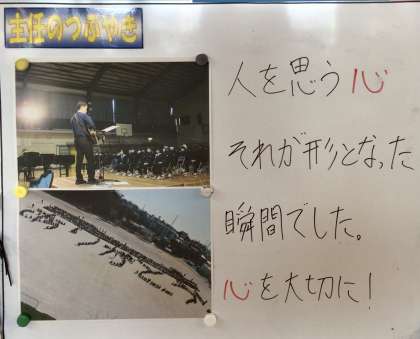 主任のつぶやき
人を思う心
それが形となった
瞬間でした。
心を大切に!